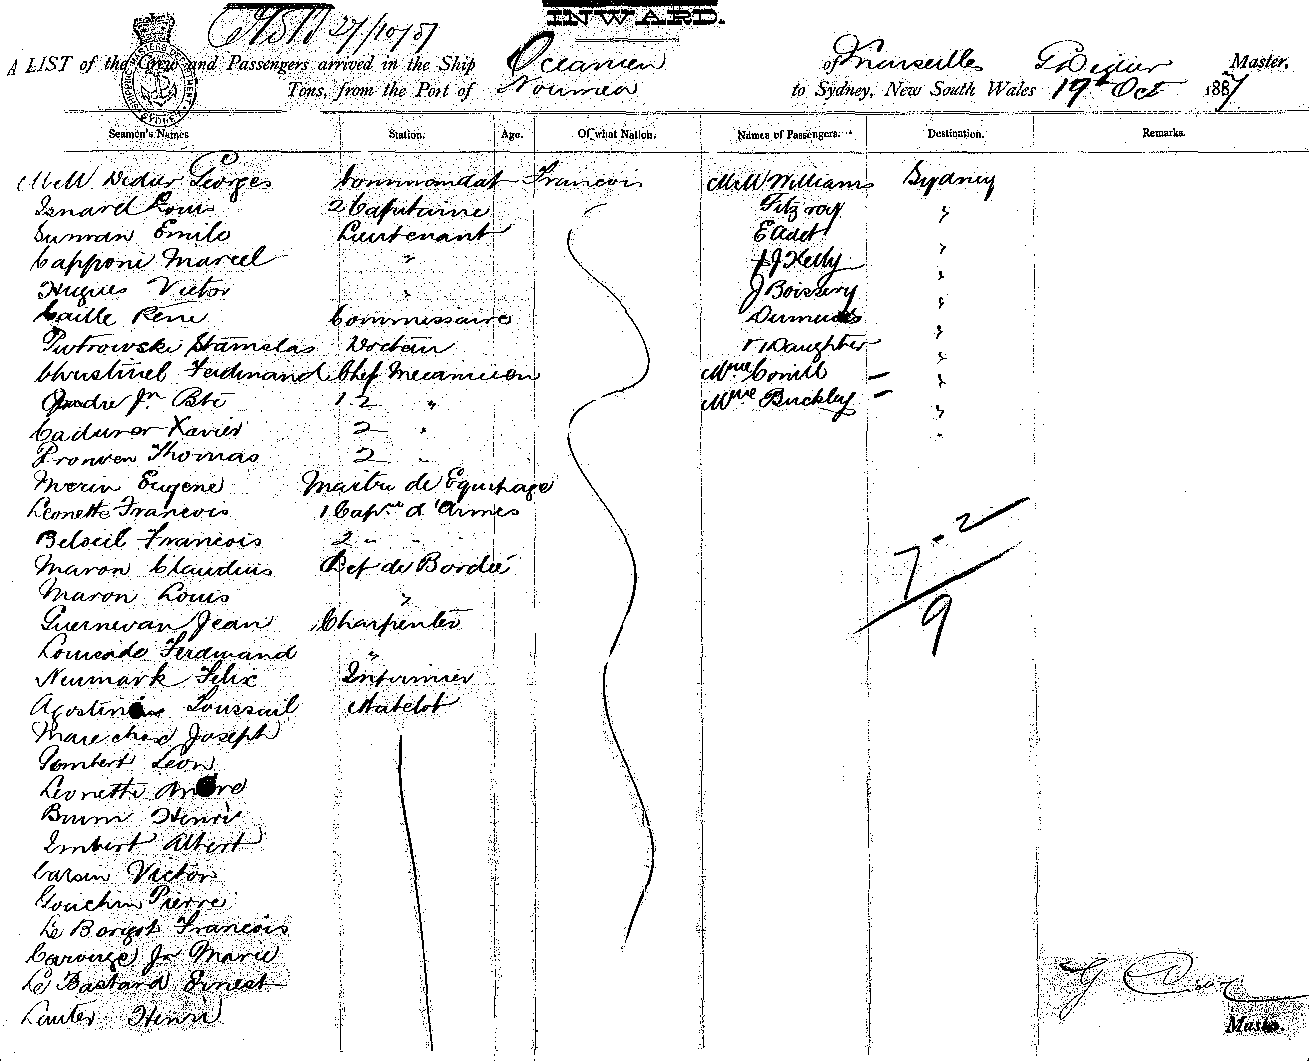 INWARD.
27/10/87
A LIST of the Crew and Passengers arrived in the Ship Oceanien of Marseilles G Didier Master,
Tons, from the Port of Noumea to Sydney, New South Wales 19th Oct 1887
Seamen's Names Station. Age. Of what Nation. Names of Passengers. Destination. Remarks.
MM Didier Georges Commandat Francois M&M Williams Sydney
Isnard Louis 2 Capitaine Fitzroy "
Emile Lieutenant
Cappone Marcel " J Kelly "
Hugues Victor " J Boissery "
Caille René Commissaire "
Piotrowski Stanislas Docteur Daughter "
Christinel Ferdinand Chef Mecanicien Mme "
André Jn Bte 1 2 " Mme Buckley "
Xavier 2 "
Thomas 2 "
Morin Eugene Maitre de Equipage
Leonetti Francois 1 Capne d'Armes
Beloeil Francois 2 " "
Maron Claudius Chef de Bordée
Maron Louis "
Jean Charpentier
Ferdinand "
Neumark Felix Infirmier
7-2
9
Agostini Matelot
Joseph
Gombert Leon
Leonetti André
Henri
Imbert Albert
Victor
Pierre
Le Borgot Francois
Jn Marie
Le Bastard Ernest
Lauter Henri
G
Master.